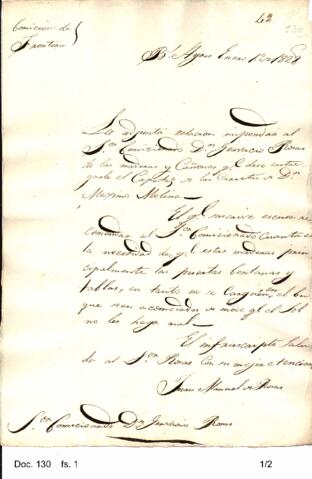 42
130
Comicion de
Fronteras
Bs Ayres Enero 12 1828
La adjunta relacion impondra al
Sor Comicionado Dn Gervacio Rosas
de las maderas y Cañones q.e deve
el Capataz de las Carretas de Dn
Maximo Molina.
El q.e suscrive escusa re
comendar al Sor Comicionado Cuanta es
la necesidad de q.e estas maderas prin
cipalmente las puertas bentanas y
tablas, en tanto no se Carguen en el
que sean acomodadas de modo q.e el Sol
no les haga mal.
El infrascripto Salu
da al Sor Rosas con su mejor atencion
Juan Manuel de Rosas
Sor Comicionado Dn Gervacio Rosas
Doc. 130 fs. 1
1/2